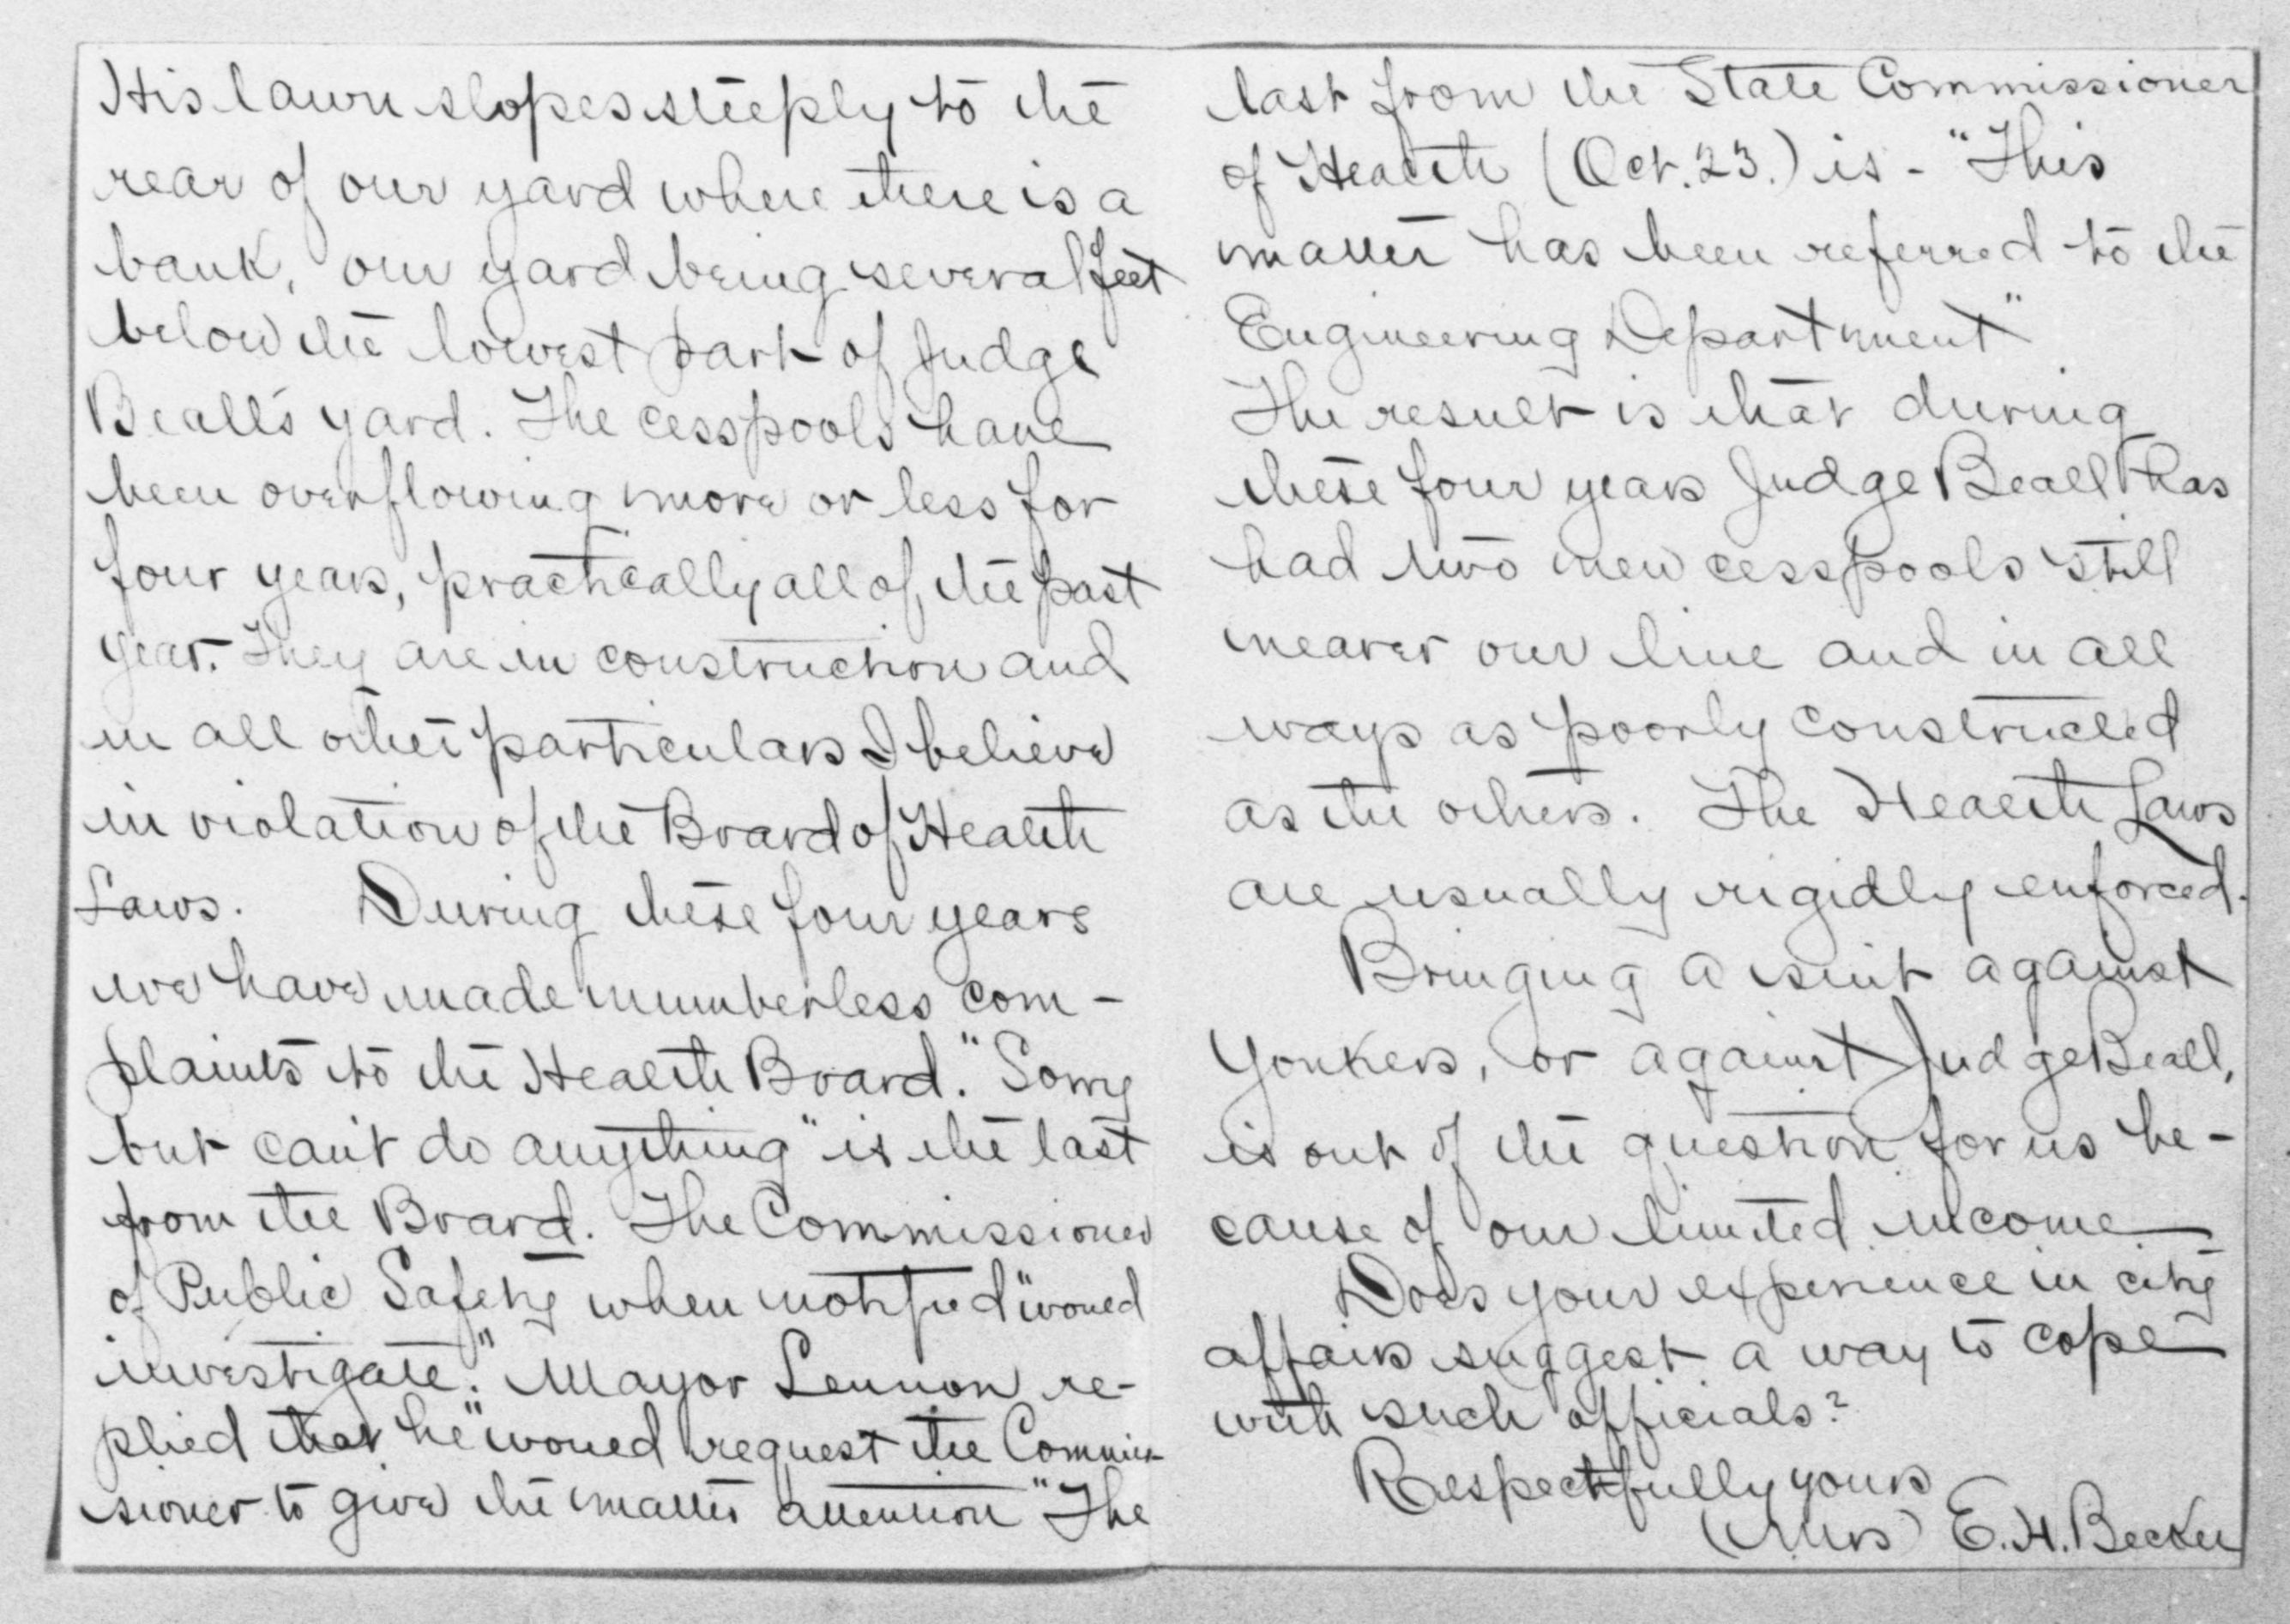 His lawn slopes steeply to the
rear of our yard where there is a
bank, our yard being several feet
below the lowest part of Judge
Beall's yard. The cesspools have
been overflowing more or less for
four years, practically all of the past
year. They are in construction and
in all other particulars I believe
in violation of the Board of Health
Laws. During these four years
we have made numberless com-
plaints to the Health Board. "Sorry
but can't do anything" is the last
from the Board. The Commissioner
of Public Safety when notified "would
investigate." Mayor Lennon re-
plied that he "would request the Commis-
sioner to give the matter attention" The
last from the State Commissioner
of Health (Oct. 23.) is - "This
matter has been referred to the
Engineering Department"
The result is that during
these four years Judge Beall has
had two new cesspools still
nearer our line and in all
ways as poorly constructed
as the others. The Health Laws
are usually rigidly enforced.
Bringing a suit against
Yonkers, or against Judge Beall,
is out of the question for us be-
cause of our limited income
Does your experience in city
affairs suggest a way to cope
with such officials?
Respectfully yours
(Mrs) E. H. Becker